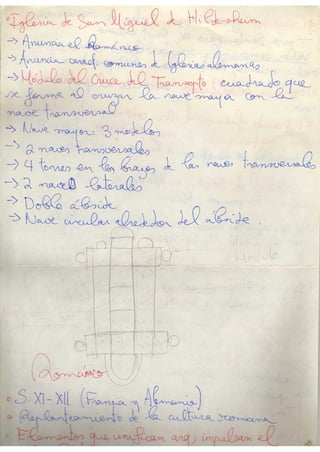 •Iglesia de San Miguel de Hildesheim
-> Anuncia el Románico
-> Anuncia caract. comunes de Iglesias alemanas
-> Módulo del Cruce del Transepto: cuadrado que
se forma al cruzar la nave mayor con la
nave transversal.
-> Nave mayor: 3 modelos
-> 2 naves transversales
-> 4 torres en los brazos de las naves transversales
-> 2 naves laterales
-> Doble ábside
-> Nave circular alrededor del ábside.
Románico
• S. XI-XII (Francia y Alemania)
• Replanteamiento de la cultura romana
• Elementos que unifican arq, impulsan el